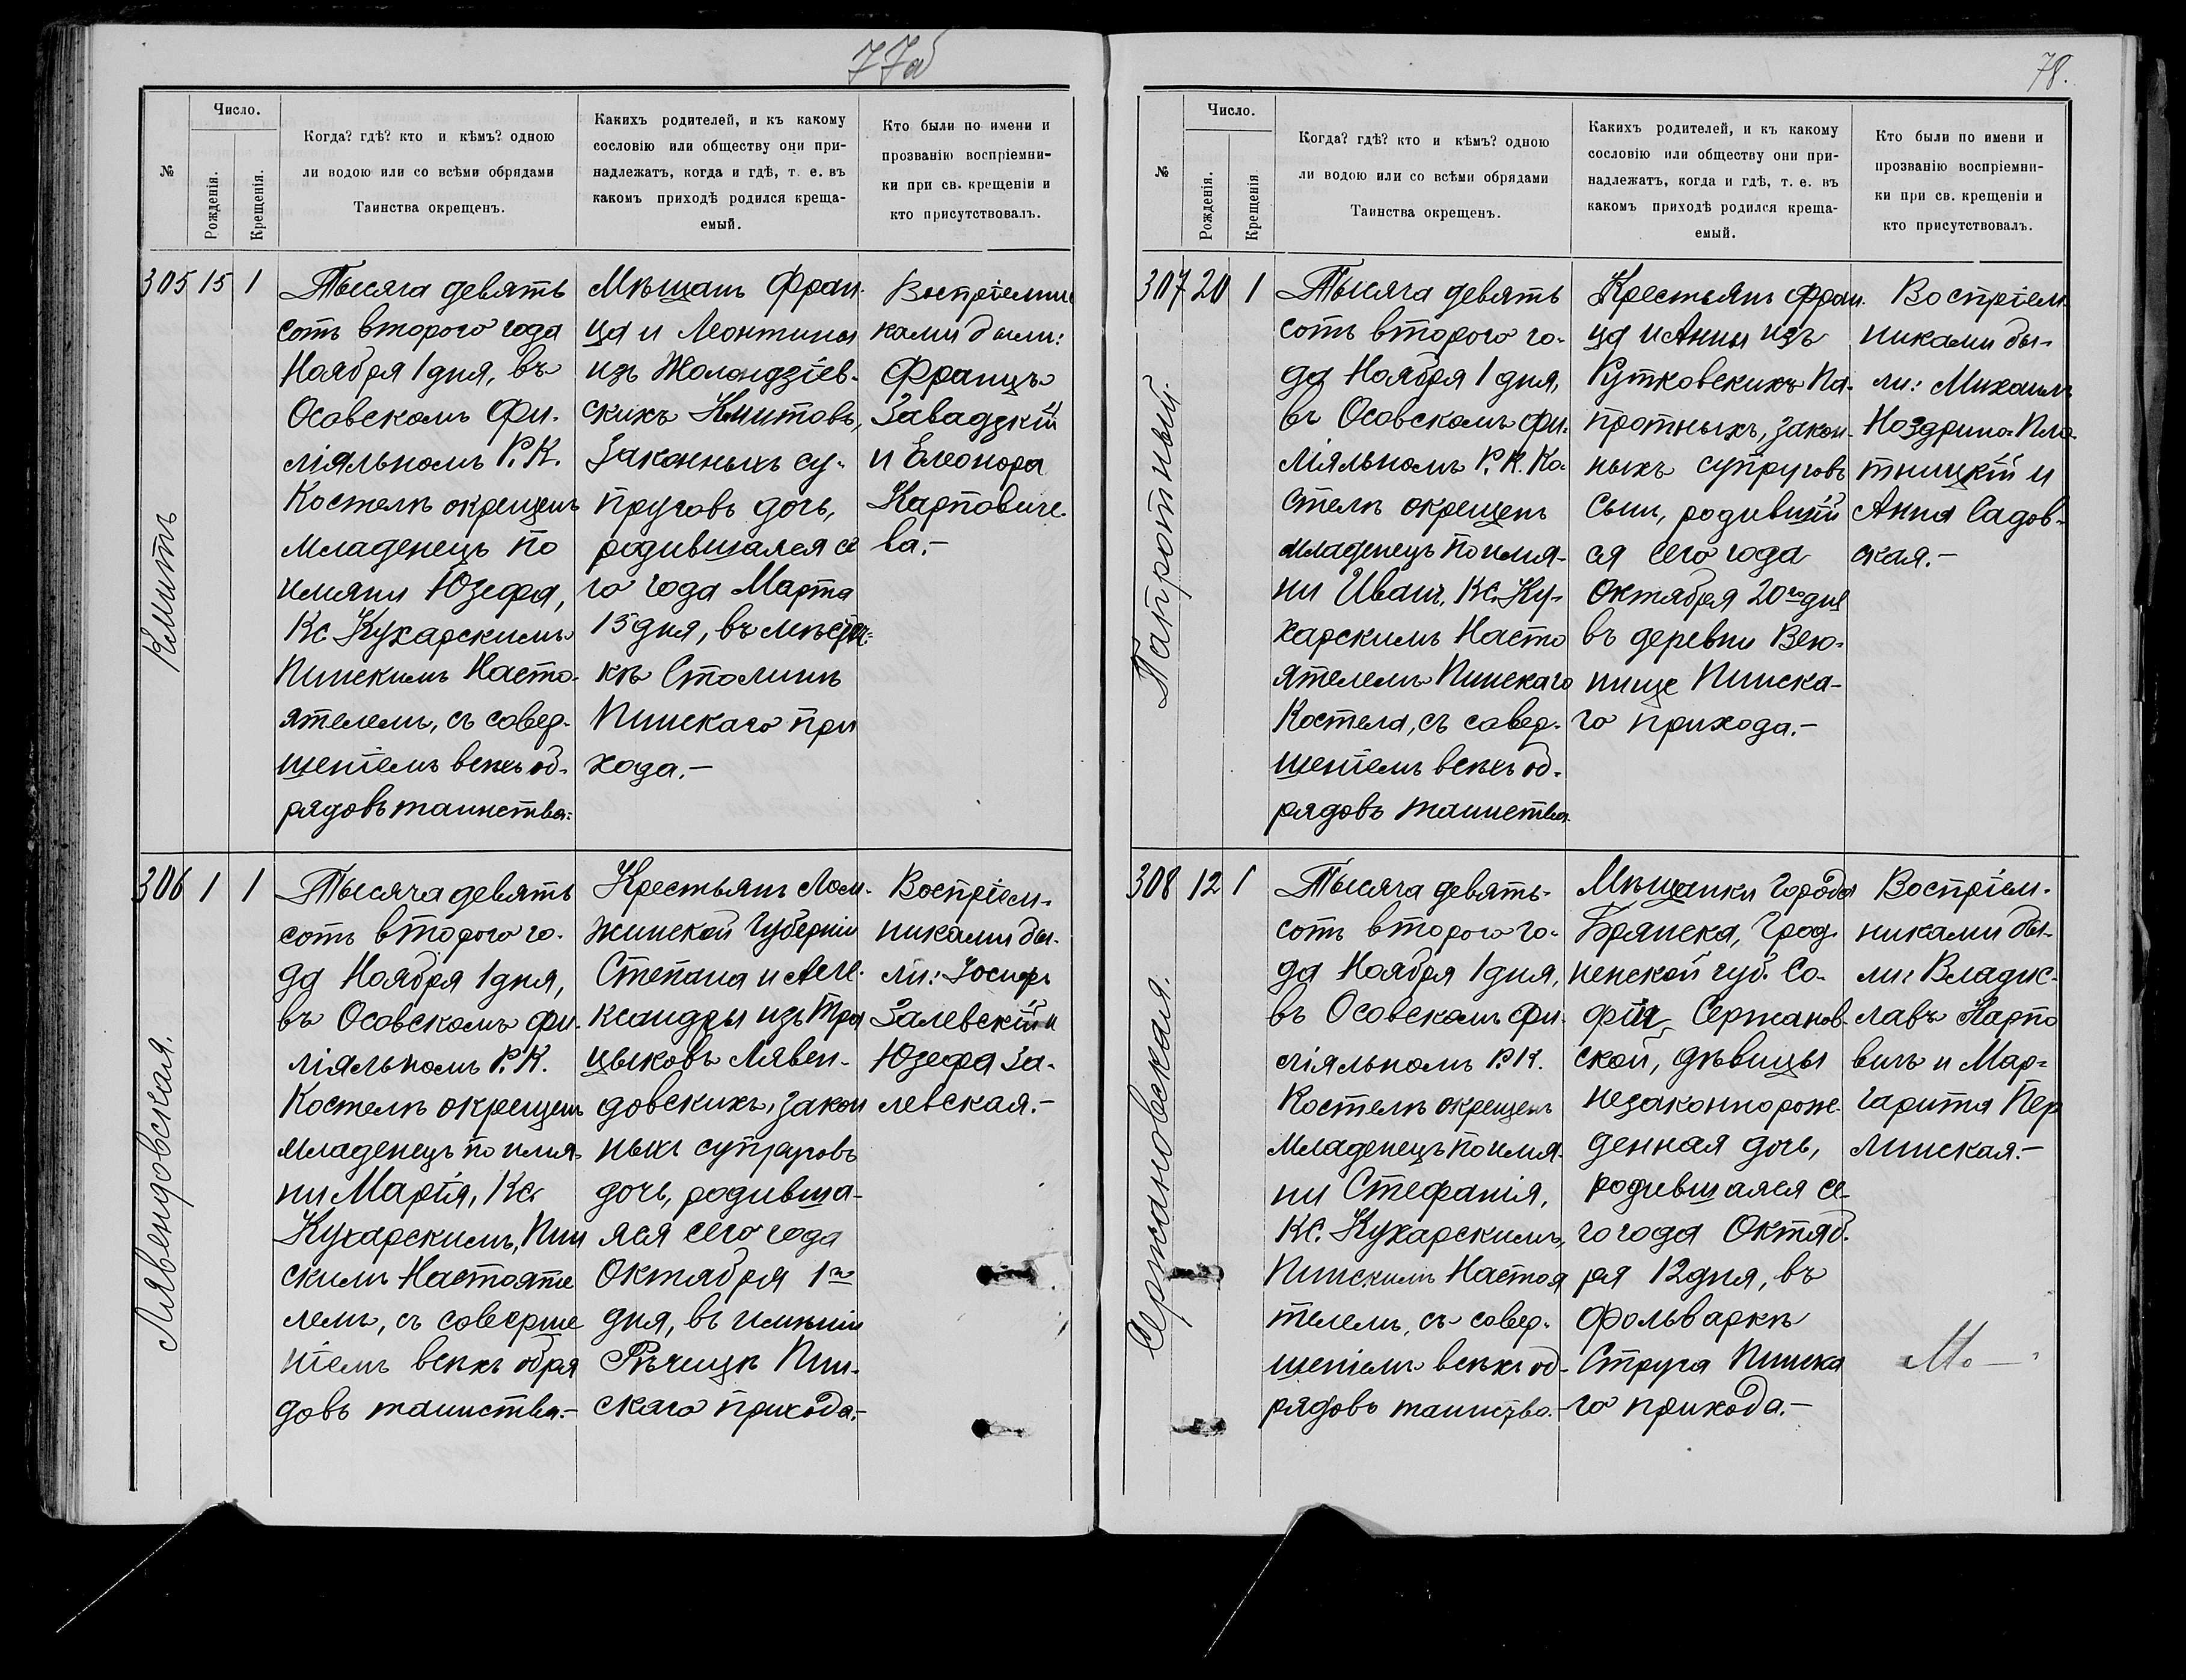 77об
№
Число.
Рожденія.
Крещенія.
Когда? гдѣ? кто и кѣмъ? одною
ли водою или со всѣми обрядами
Таинства окрещенъ.
Какихъ родителей, и къ какому
сословію или обществу они при-
надлежатъ, когда и гдѣ, т. е. въ
какомъ приходѣ родился креща-
емый.
Кто были по имени и
прозванію воспріемни-
ки при св. крещеніи и
кто присутствовалъ.
305 15 1
Кмитъ
Тысяча девять
сотъ второго года
Ноября 1 дня, въ
Осовскомъ Фи-
ліяльномъ Р. К.
Костелѣ окрещенъ
младенецъ по
имяни Юзефа,
Кс. Кухарскимъ
Пинскимъ Насто-
ятелемъ, съ совер-
шеніемъ всѣхъ об-
рядовъ таинства:
Мѣщанъ Фран-
ца и Леонтины
изъ Жолондзіев-
скихъ Кмитовъ,
Законныхъ су-
пруговъ дочь,
родившаяся се
го года Марта
15 дня, въ мѣстеч-
кѣ Столинѣ
Пинскаго при
хода.-
Воспріемни
ками были:
Францъ
Завадзкій
и Елеонора
Карповиче-
ва.-
306 1 1
Лявендовская.
Тысяча девять
сотъ второго го-
да Ноября 1 дня,
въ Осовскомъ фи-
ліяльномъ Р. К.
Костелѣ окрещенъ
младенецъ по имя-
ни Марія, Кс.
Кухарскимъ, Пин
скимъ Настояте
лемъ, съ соверше
ніемъ всѣхъ обря
довъ таинства.-
Крестьянъ Лом-
жинской Губерніи
Степана и Але-
ксандры изъ Тра
цыковъ Лявен-
довскихъ, закон
ныхъ супруговъ
дочь, родивша-
яся сего года
Октября 1го
дня, въ имѣніи
Рѣчицѣ Пин-
скаго прихода.-
Воспріем-
никами бы-
ли: Іосифъ
Залевскій и
Юзефа За-
левская.-
78.
№
Число.
Рожденія.
Крещенія
Когда? гдѣ? кто и кѣмъ? одною
ли водою или со всѣми обрядами
Таинства окрещенъ.
Какихъ родителей, и къ какому
сословію или обществу они при-
надлежатъ, когда и гдѣ, т. е. въ
какомъ приходѣ родился креща-
емый.
Кто были по имени и
прозванію воспріемни-
ки при св. крещеніи и
кто присутствовалъ.
307 20 1
Папротный.
Тысяча девять
сотъ второго го-
да Ноября 1 дня,
въ Осовскомъ фи-
ліяльномъ Р. К. Ко-
стелѣ окрещенъ
младенецъ по имя-
ни Иванъ, Кс. Ку-
харскимъ Насто
ятелемъ Пинскаго
Костела, съ совер-
шеніемъ всѣхъ об-
рядовъ таинства
Крестьянъ Фран-
ца и Анны изъ
Рутковскихъ Па-
протныхъ, закон-
ныхъ супруговъ
сынъ, родившій
ся сего года
Октября 20го дня
въ деревни Вею-
нище Пинска-
го прихода.-
Воспріем-
никами бы-
ли: Михаилъ
Ноздрино-Пла-
тницкій и
Анна Садов-
ская.-
308 12 1
Сержановская.
Тысяча девять-
сотъ второго го-
да Ноября 1 дня,
въ Осовскомъ фи-
ліяльномъ Р. К.
Костелѣ окрещенъ
младенецъ по имя-
ни Стефанія,
Кс. Кухарскимъ,
Пинскимъ Настоя
телемъ, съ совер-
шеніемъ всѣхъ об-
рядовъ таинства.-
Мѣщанки города
Брянска, Грод-
ненской губ. Со-
фіи Сержанов-
ской, дѣвицы
незаконнорож-
денная дочь,
родившаяся се-
го года Октяб-
ря 12 дня, въ
фольваркѣ
Струга Пинска
го прихода.-
Воспріем-
никами бы-
ли: Владис-
лавъ Карпо
вичъ и Мар-
гарита Пер
линская.-